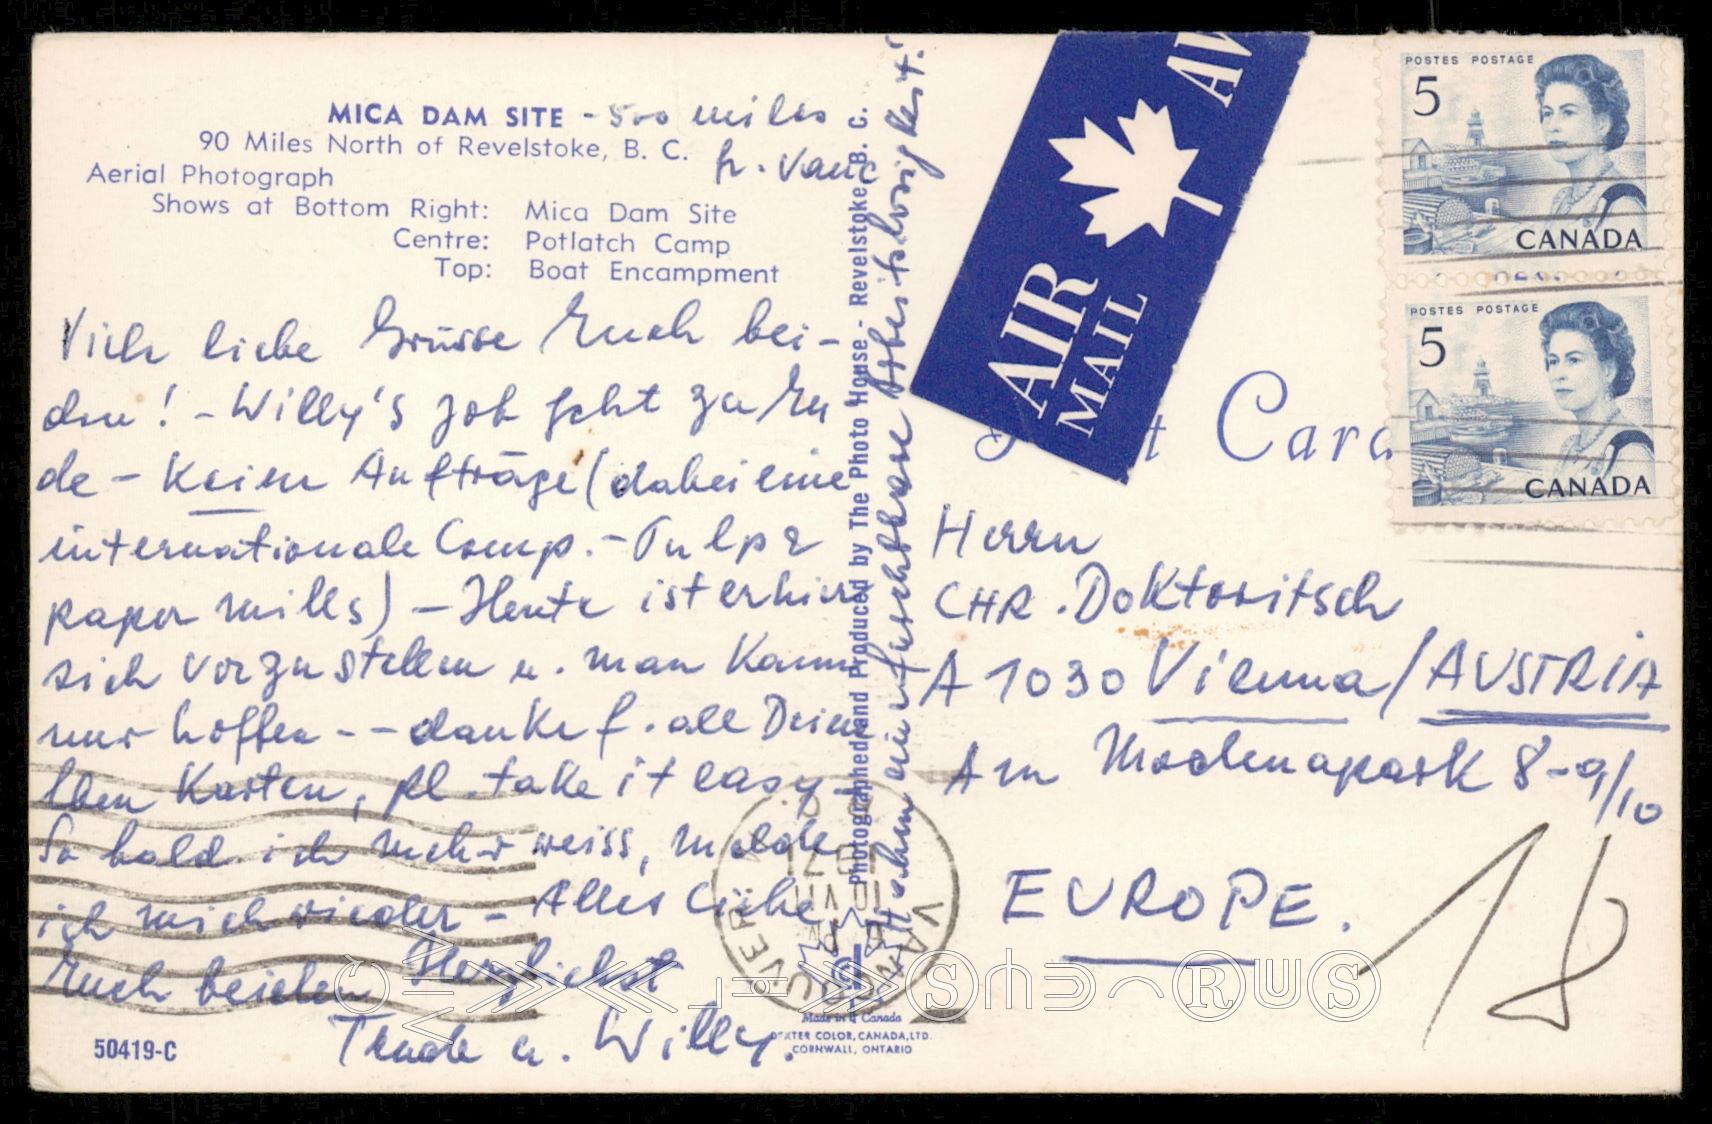 MICA DAM SITE - 500 miles
90 Miles North of Revelstoke, B. C. fr. Vanc
Aerial Photograph
Shows at Bottom Right: Mica Dam Site
Centre: Potlatch Camp
Top: Boat Encampment
Viele liebe Grüsse Euch bei-
den! - Willy's job geht zu En
de - keine Aufträge (dabei eine
internationale Comp. - Pulp &
paper mills) - Heute ist er hier
sich vorzustellen u. man kann
nur hoffen - - danke f. all Deine
lben Karten, pl. take it easy -
So bald ich mehr weiss, melde
ich mich wieder - Alles Liebe
Euch beiden Herzlichst
Trude u. Willy.
50419-C
Photographed and Produced by The Photo House - Revelstoke, B. C.
Haben eine furchtbare Arbeitslosigkeit!
Made in Canada
DEXTER COLOR, CANADA, LTD.
CORNWALL, ONTARIO
AIR
MAIL
AV
Card
POSTES POSTAGE
5
CANADA
POSTES POSTAGE
5
CANADA
VANCOUVER
PM
10 VII
1971
B. C.
Herrn
CHR. Doktoritsch
A 1030 Vienna / AUSTRIA
Am Modenapark 8-9/10
EUROPE.
18